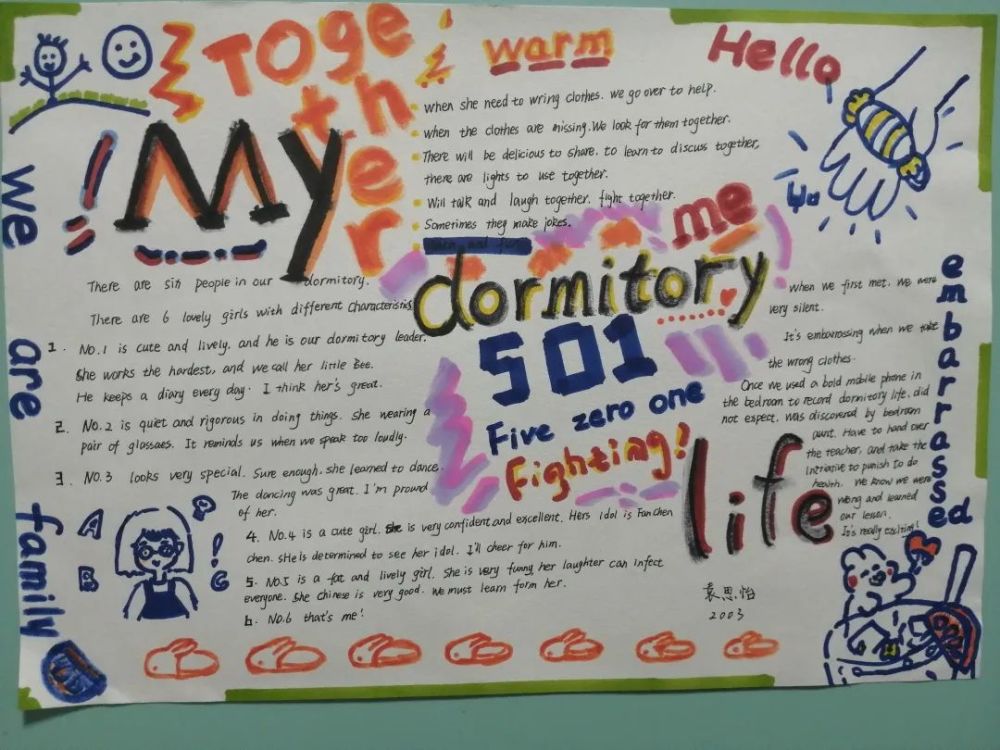 Together
warm
Hello
My
when she need to wring clothes. we go over to help.
when the clothes are missing. We look for them together.
There will be delicious to share. to learn to discuss together,
there are lights to use together.
Will talk and laugh together. fight together.
Sometimes they make jokes.
me
dormitory
501
Five zero one
Fighting!
life
we are family
There are six people in our dormitory.
There are 6 lovely girls with different characteristics.
1. No.1 is cute and lively. and he is our dormitory leader.
She works the hardest, and we call her little Bee.
He keeps a diary every day. I think her's great.
2. No.2 is quiet and rigorous in doing things. She wearing a
pair of glossaes. It reminds us when we speak too loudly.
3. No.3 looks very special. Sure enough. she learned to dance.
The dancing was great. I'm pround
of her.
4. No.4 is a cute girl. She is very confident and excellent. Hers idol is Fan chen
chen. sHe is determined to see her idol. I'll cheer for him.
5. No.5 is a fat and lively girl. She is very funny. her laughter can infect
everyone. She chinese is very good. We must learn form her.
6. No.6 that's me!
A
B
P
!
G
embarrassed
when we first met. we were
very silent.
It's embarrossing when we take
the wrong clothes.
Once we used a bold mobile phone in
the bedroom to record dormitory life. did
not expect. was discovered by bedroom
aunt. Have to hand over
the teacher, and take the
initiative to punish to do
health. We know we were
wrong and learned
our lesson.
It's really exciting!
袁思怡
2003